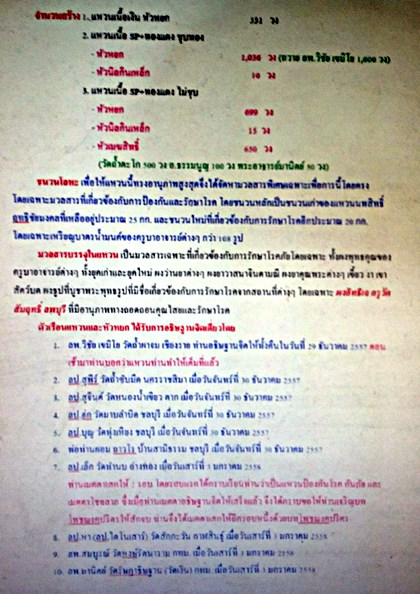 จำนวนสร้าง 1. แหวนเนื้อเงิน หัวหอก 331 วง
2. แหวนเนื้อ SP+ทองแดง ชุบทอง
- หัวหอก 1,036 วง (ถวาย ลพ.วิชัย เขมิโย 1,000 วง)
- หัวนิลกินเหล็ก 10 วง
3. แหวนเนื้อ SP+ทองแดง ไม่ชุบ
- หัวหอก 699 วง
- หัวนิลกินเหล็ก 15 วง
- หัวเมฆสิทธิ์ 650 วง
(วัดถ้ำตะโก 500 วง อ.ธรรมนูญ 100 วง พระอาจารย์มานิตย์ 50 วง)
ชนวนโลหะ เพื่อให้แหวนนี้ทรงอานุภาพสูงสุดจึงได้จัดหามวลสารพิเศษเฉพาะเพื่อการนี้โดยตรง
โดยเฉพาะมวลสารที่เกี่ยวข้องกับการป้องกันและรักษาโรค โดยชนวนหลักเป็นชนวนเก่าของแหวนนพสิทธิ์
ฤทธิ์ชัยมงคลที่เหลืออยู่ประมาณ 25 กก. และชนวนใหม่ที่เกี่ยวข้องกับการรักษาโรคอีกประมาณ 20 กก.
โดยเฉพาะเหรียญบาตรน้ำมนต์ของครูบาอาจารย์ต่างๆ กว่า 108 รูป
มวลสารบรรจุในแหวน เป็นมวลสารเฉพาะที่เกี่ยวข้องกับการรักษาโรคภัยโดยเฉพาะ ทั้งผงพุทธคุณของ
ครูบาอาจารย์ต่างๆ ทั้งยุคเก่าและยุคใหม่ ผงว่านยาต่างๆ ผงยาวาสนาจินดามณี ผงยาคุณพระต่างๆ เขี้ยว งา เขา
สัตว์บด ผงธูปที่บูชาพระพุทธรูปที่มีชื่อเกี่ยวข้องกับการรักษาโรคจากสถานที่ต่างๆ โดยเฉพาะ ผงสิทธิเจ ครูวัด
สัมฤทธิ์ ลพบุรี ที่มีอานุภาพทางถอดถอนคุณไสยและรักษาโรค
ตัวเรือนแหวนและหัวหอก ได้รับการอธิษฐานจิตเดี่ยวโดย
1. ลพ.วิชัย เขมิโย วัดถ้ำผาจม เชียงราย ท่านอธิษฐานจิตให้ทั้งคืนในวันที่ 29 ธันวาคม 2557 ตอน
เช้ามาท่านบอกว่าแหวนท่านทำให้เต็มที่แล้ว
2. ลป.สุพีร์ วัดถ้ำซับมืด นครราชสีมา เมื่อวันจันทร์ที่ 30 ธันวาคม 2557
3. ลป.สุจินต์ วัดหนองน้ำเขียว ตาก เมื่อวันจันทร์ที่ 30 ธันวาคม 2557
4. ลป.ฮก วัดมาบลำบิด ชลบุรี เมื่อวันจันทร์ที่ 30 ธันวาคม 2557
5. ลป.บุญ วัดทุ่งเหียง ชลบุรี เมื่อวันจันทร์ที่ 30 ธันวาคม 2557
6. พ่อท่านคอม บ้านสามิธรรม ชลบุรี เมื่อวันจันทร์ที่ 30 ธันวาคม 2557
7. ลป.เล็ก วัดท่าบน อ่างทอง เมื่อวันเสาร์ที่ 3 มกราคม 2558
ท่านเมตตาเสกให้ 2 รอบ โดยรอบแรกได้กราบเรียนท่านว่าเป็นแหวนป้องกันโรค กันภัย และ
เมตตาโชคลาภ ซึ่งเมื่อท่านเมตตาอธิษฐานจิตให้เสร็จแล้ว จึงได้กราบขอให้ท่านเจริญบท
โพชฌงคปริตรให้สักจบ ท่านจึงได้เมตตาเสกให้อีกรอบหนึ่งด้วยบทโพชฌงคปริตร
8. ลป.หา (ลป.ไดโนเสาร์) วัดสักกะวัน กาฬสินธุ์ เมื่อวันเสาร์ที่ 3 มกราคม 2558
9. ลพ.สมบูรณ์ กทม. เมื่อวันเสาร์ที่ 3 มกราคม 2558
10. ลพ.มานิตย์ (วัดเงิน) กทม. เมื่อวันเสาร์ที่ 3 มกราคม 2558